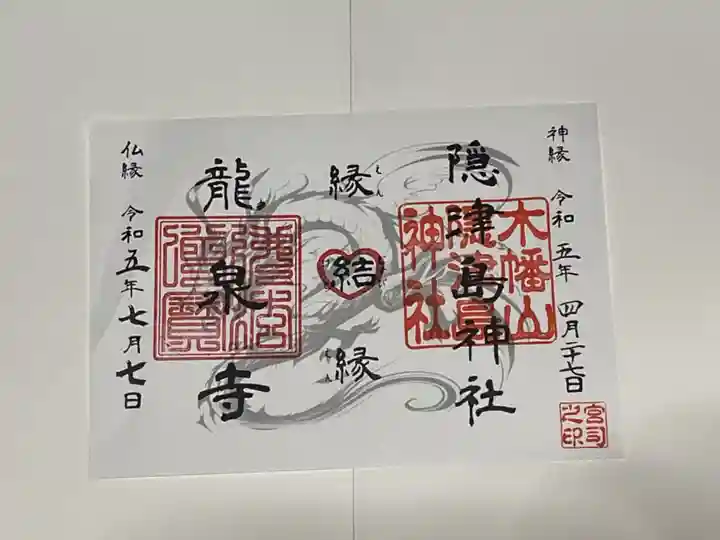 神縁 令和五年四月二十七日
隠津島神社
木幡山
隠津島
神社
宮司
之印
縁結縁
えん
えん
龍泉寺
佛法
僧寶
仏縁 令和五年七月七日